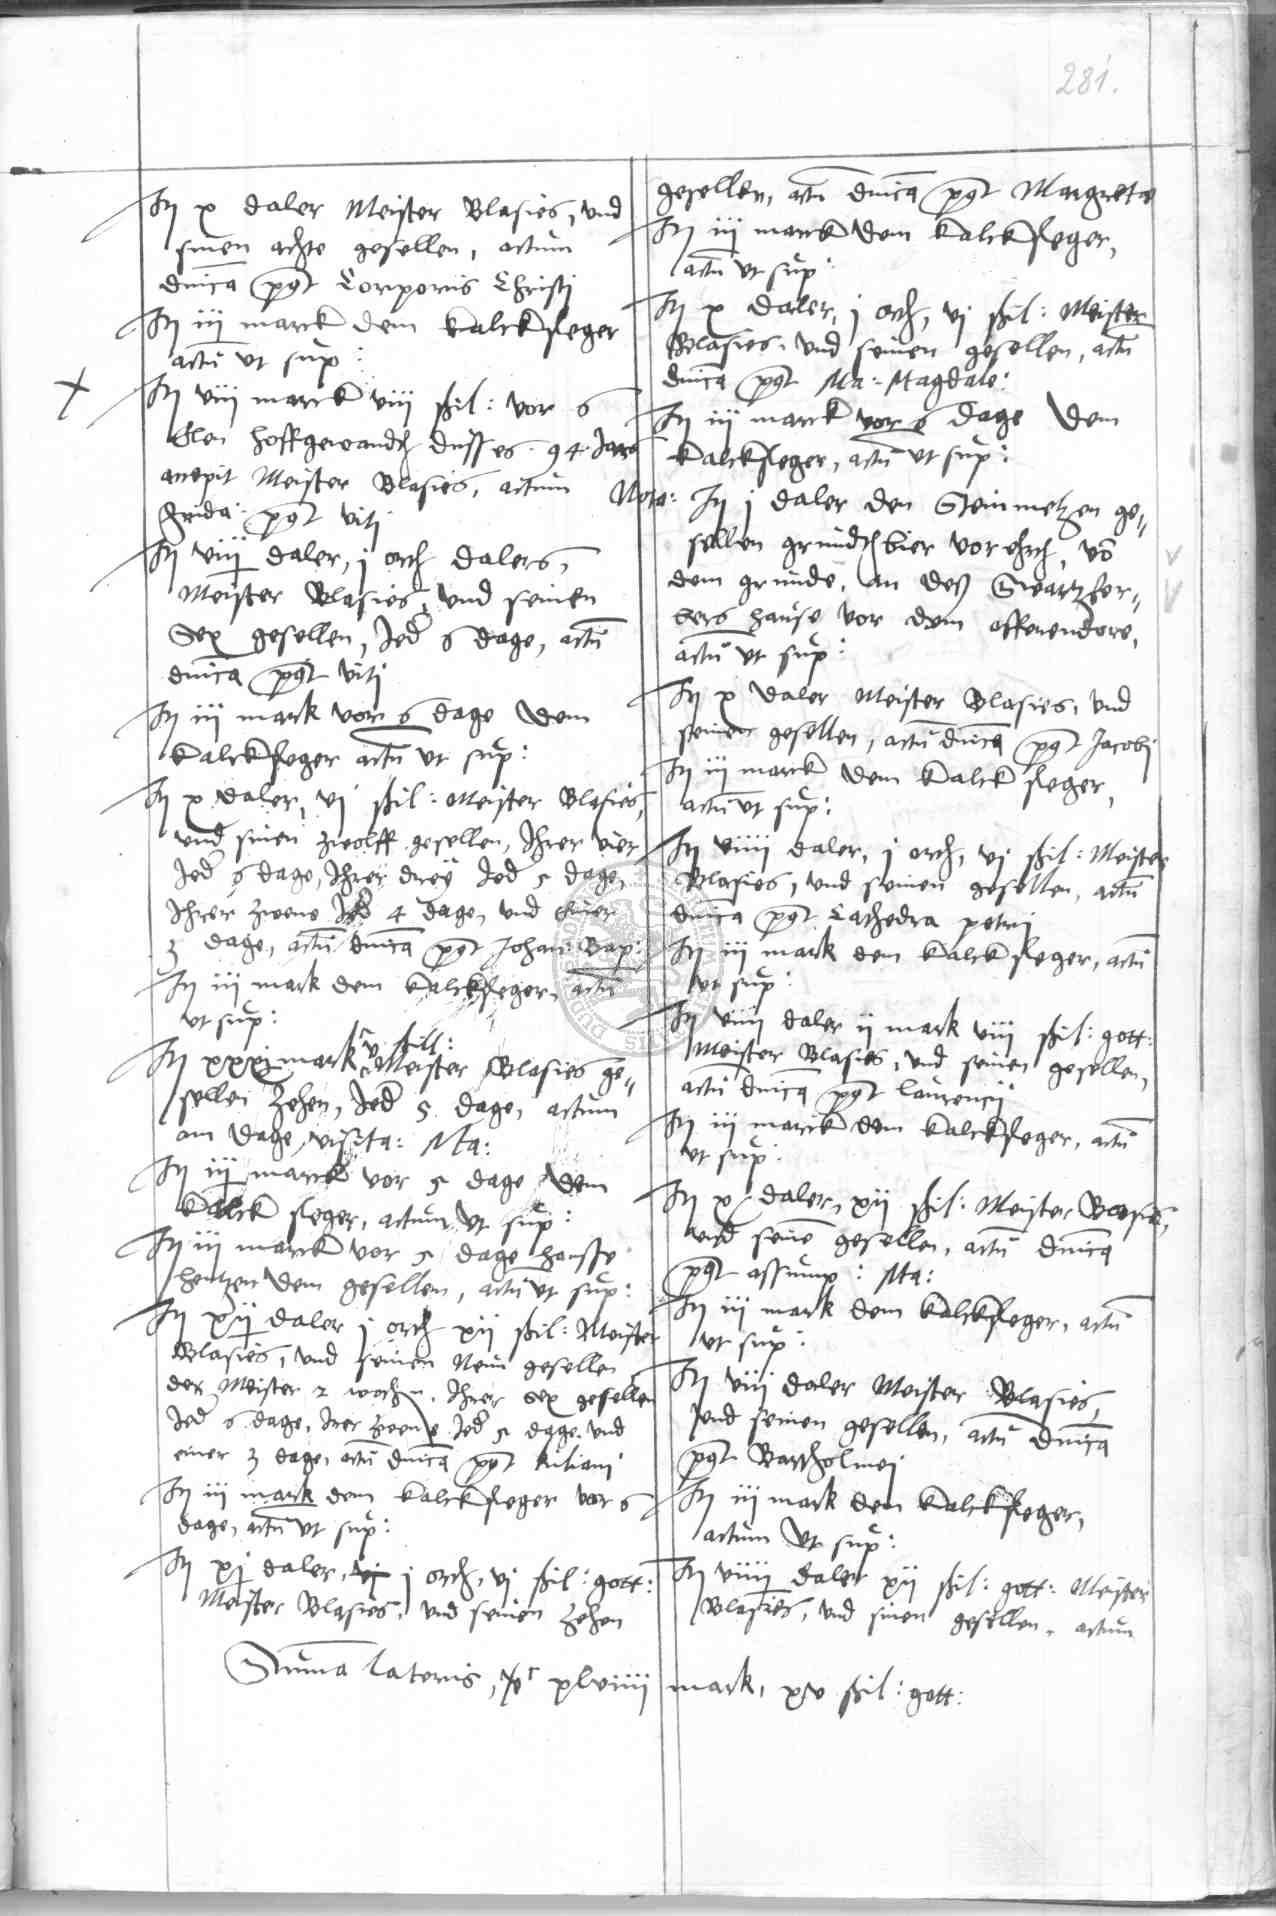 281.
It x daler Meister Blasies, vnd
sinen achte gesellen, actum
dnica pqt Corporis Christi
It iij marck dem Kalckfleger
actu vt sup:
It viij marck viij ßil: vor 6
Elen hoffgewandt dusses 94 Jars
accepit Meister Blasies, actum
frida: pqt viti
It viij daler, j orth dalers,
Meister Blasies, vnd seinen
Sex gesellen, Jed 6 dage, actu
dnica pqt viti
It iij mark vor 6 dage dem
Kalckfleger actu vt sup:
It x daler, vj ßil: Meister Blasies,
vnd sinen zwolff gesellen, Ihrer vier
Jed 6 dage, Ihrer drey Jed 5 dage,
Ihrer zwene Jed 4 dage, vnd einer
3 dage, actu dnica pqt Johan: Bap:
It iij mark dem Kalckfleger, actu
vt sup:
It xxxj mark v ßill: Meister Blasies ge„
sellen zehen, Jed 5 dage, actum
am dage visita: Ma:
It iij marck vor 5 dage dem
Kalck fleger, actum vt sup:
It iij marck vor 5 dage hansse
hentzen dem gesellen, actu vt sup:
It xij daler j orth xij ßil: Meister
Blasies, vnd seinen Neun gesellen
der Meister 2 wochen, Ihrer sex gesellen
Jed 6 dage, Irer zwene Jed 5 dage vnd
einer 3 dage, actu dnica pqt Kiliani
It iij mark dem Kalckfleger vor 6
dage, actu vt sup:
It xj daler, j orth, vj ßil: gott:
Meister Blasies, vnd seinen zehen
gesellen, actu dnica pqt Margrete
It iij marck dem Kalckfleger,
actu vt sup:
It x daler, j orth, vj ßil: Meister
Blasies, vnd seinen gesellen, actu
dnica pqt Ma: Magdale:
It iij marck vor 6 dage dem
Kalckfleger, actu vt sup:
Nota: It j daler den Steinmetzen ge„
sellen grundtbier vorehrth, vo
dem grunde, an des Swartzfer„
bers hause vor dem offenendore,
actu vt sup:
It x daler Meister Blasies, vnd
seinen gesellen, actu dnica pqt Jacobj
It iij marck dem Kalck fleger,
actu vt sup:
It viiij daler, j orth, vj ßil: Meister
Blasies, vnd seinen gesellen, actu
dnica pqt Cathedra petri
It iij mark dem Kalck fleger, actu
vt sup:
It viiij daler ij mark viij ßil: gott:
Meister Blasies, vnd seinen gesellen,
actu dnica pqt laurencij
It iij marck dem Kalckfleger, actu
vt sup:
It x daler, xij ßil: Meister Blasies,
vnd seine gesellen, actu dnica
pqt assump: Ma:
It iij mark dem Kalckfleger, actu
vt sup:
It viij daler Meister Blasies,
vnd seinen gesellen, actu dnica
pqt Bartholmei
It iij mark dem Kalckfleger,
actum vt sup:
It viiij daler xij ßil: gott: Meister
Blasies, vnd sinen gesellen, actum
Summa lateris, xlviiij mark, xv ßil: gott: